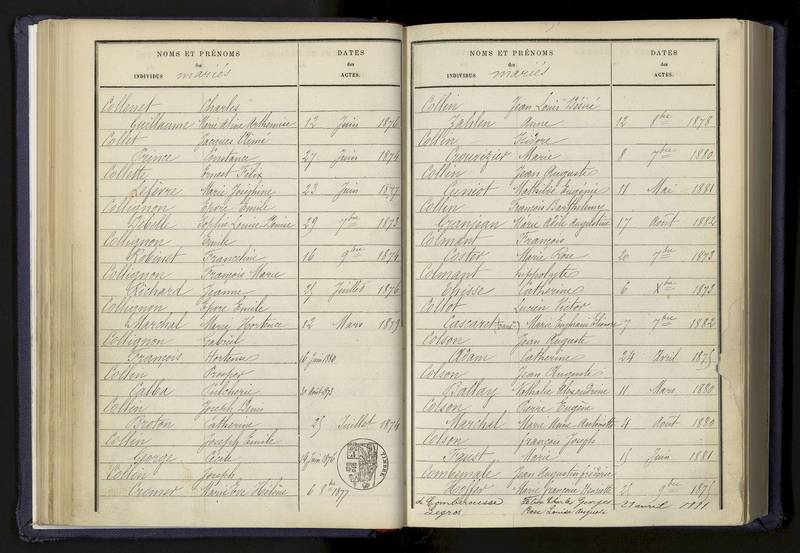 NOMS ET PRÉNOMS
des
INDIVIDUS mariés
DATES
des
ACTES.
Collenet Charles
Guillaume Marie 12 Juin 1876
Collet Jacques Aimé
Prince Constance 27 Juin 1874
Collette Ernest Félix
Lefèvre Marie Joséphine 23 Juin 1877
Collignon Emile
Sophie Louise 29 7bre 1873
Collignon Emile
Robinet Franceline 16 9bre 1874
Collignon François Marie
Richard Jeanne 25 Juillet 1876
Collignon Emile
Marchal Marie Hortence 12 Mars 1879
Collignon Gabriel
François Hortense 16 Juin 1880
Collin Prosper
Calba Pulcherie 30 Août 1873
Collin Joseph Denis
Breton Catherine 25 Juillet 1874
Collin Joseph Emile
George 19 Juin 1876
Collin Joseph
Cremer Marie Eve Hélène 6 8bre 1877
NOMS ET PRÉNOMS
des
INDIVIDUS mariés
DATES
des
ACTES.
Collin Jean Louis Désiré
Zahlen Anne 12 8bre 1878
Collin Isidore
Crouvizier Marie 8 7bre 1880
Collin Jean Auguste
Cuniot Mathilde Eugénie 11 Mai 1881
Collin François Barthélemy
Granjean Marie Adèle Augustine 17 Août 1882
Colmant François
Costor Marie Rose 20 7bre 1873
Colmant Hippolyte
Catherine 6 Xbre 1873
Collot Lucien Victor
Cascaret Marie 7 7bre 1882
Colson Jean Auguste
Adam Catherine 24 Avril 1875
Colson Jean Auguste
Ballay Nathalie Alexandrine 11 Mars 1880
Colson Pierre Eugène
Marchal Marie Anne Antoinette 4 Août 1880
Colson François Joseph
Faust Marie 15 Juin 1881
Combemale Jean Augustin
Marie Françoise Henriette 25 9bre 1875
de Combarousse Georges
Legros Rose Louise 21 avril 1881